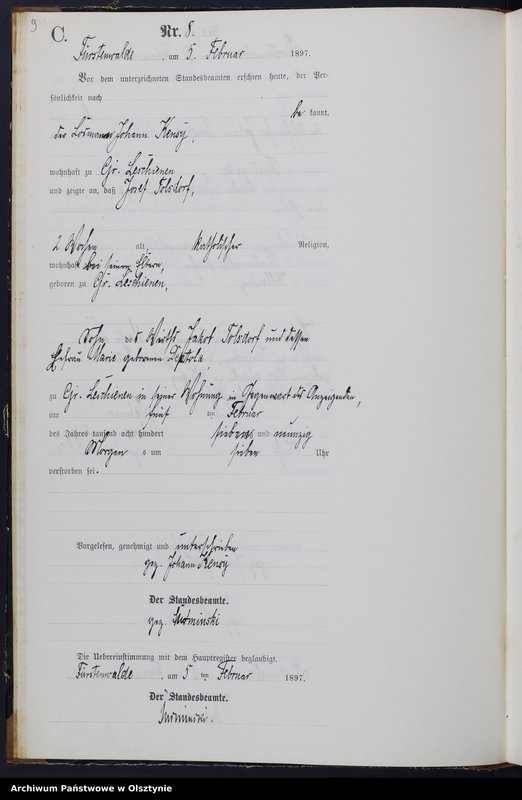 9
C.
Nr. 8.
Fürstenwalde, am 5. Februar 1897.
Vor dem unterzeichneten Standesbeamten erschien heute, der Per-
sönlichkeit nach
be kannt,
der Losmann Johann Kensy,
wohnhaft zu Gr. Leschienen
und zeigte an, daß Josef Tolsdorf,
2 Wochen alt, katholischer Religion,
wohnhaft bei seinen Eltern,
geboren zu Gr. Leschienen,
Sohn des Wirths Jakob Tolsdorf und dessen
Ehefrau Marie geborenen
zu Gr. Leschienen in seiner Wohnung in Gegenwart des Anzeigenden,
am fünf ten Februar
des Jahres tausend acht hundert sieben und neunzig
Morgen s um sieben Uhr
verstorben sei.
Vorgelesen, genehmigt und unterschrieben
gez. Johann Kensy
Der Standesbeamte.
gez. Surminski
Die Uebereinstimmung mit dem Hauptregister beglaubigt.
Fürstenwalde, am 5 ten Februar 1897.
Der Standesbeamte.
Surminski.
Archiwum Państwowe w Olsztynie